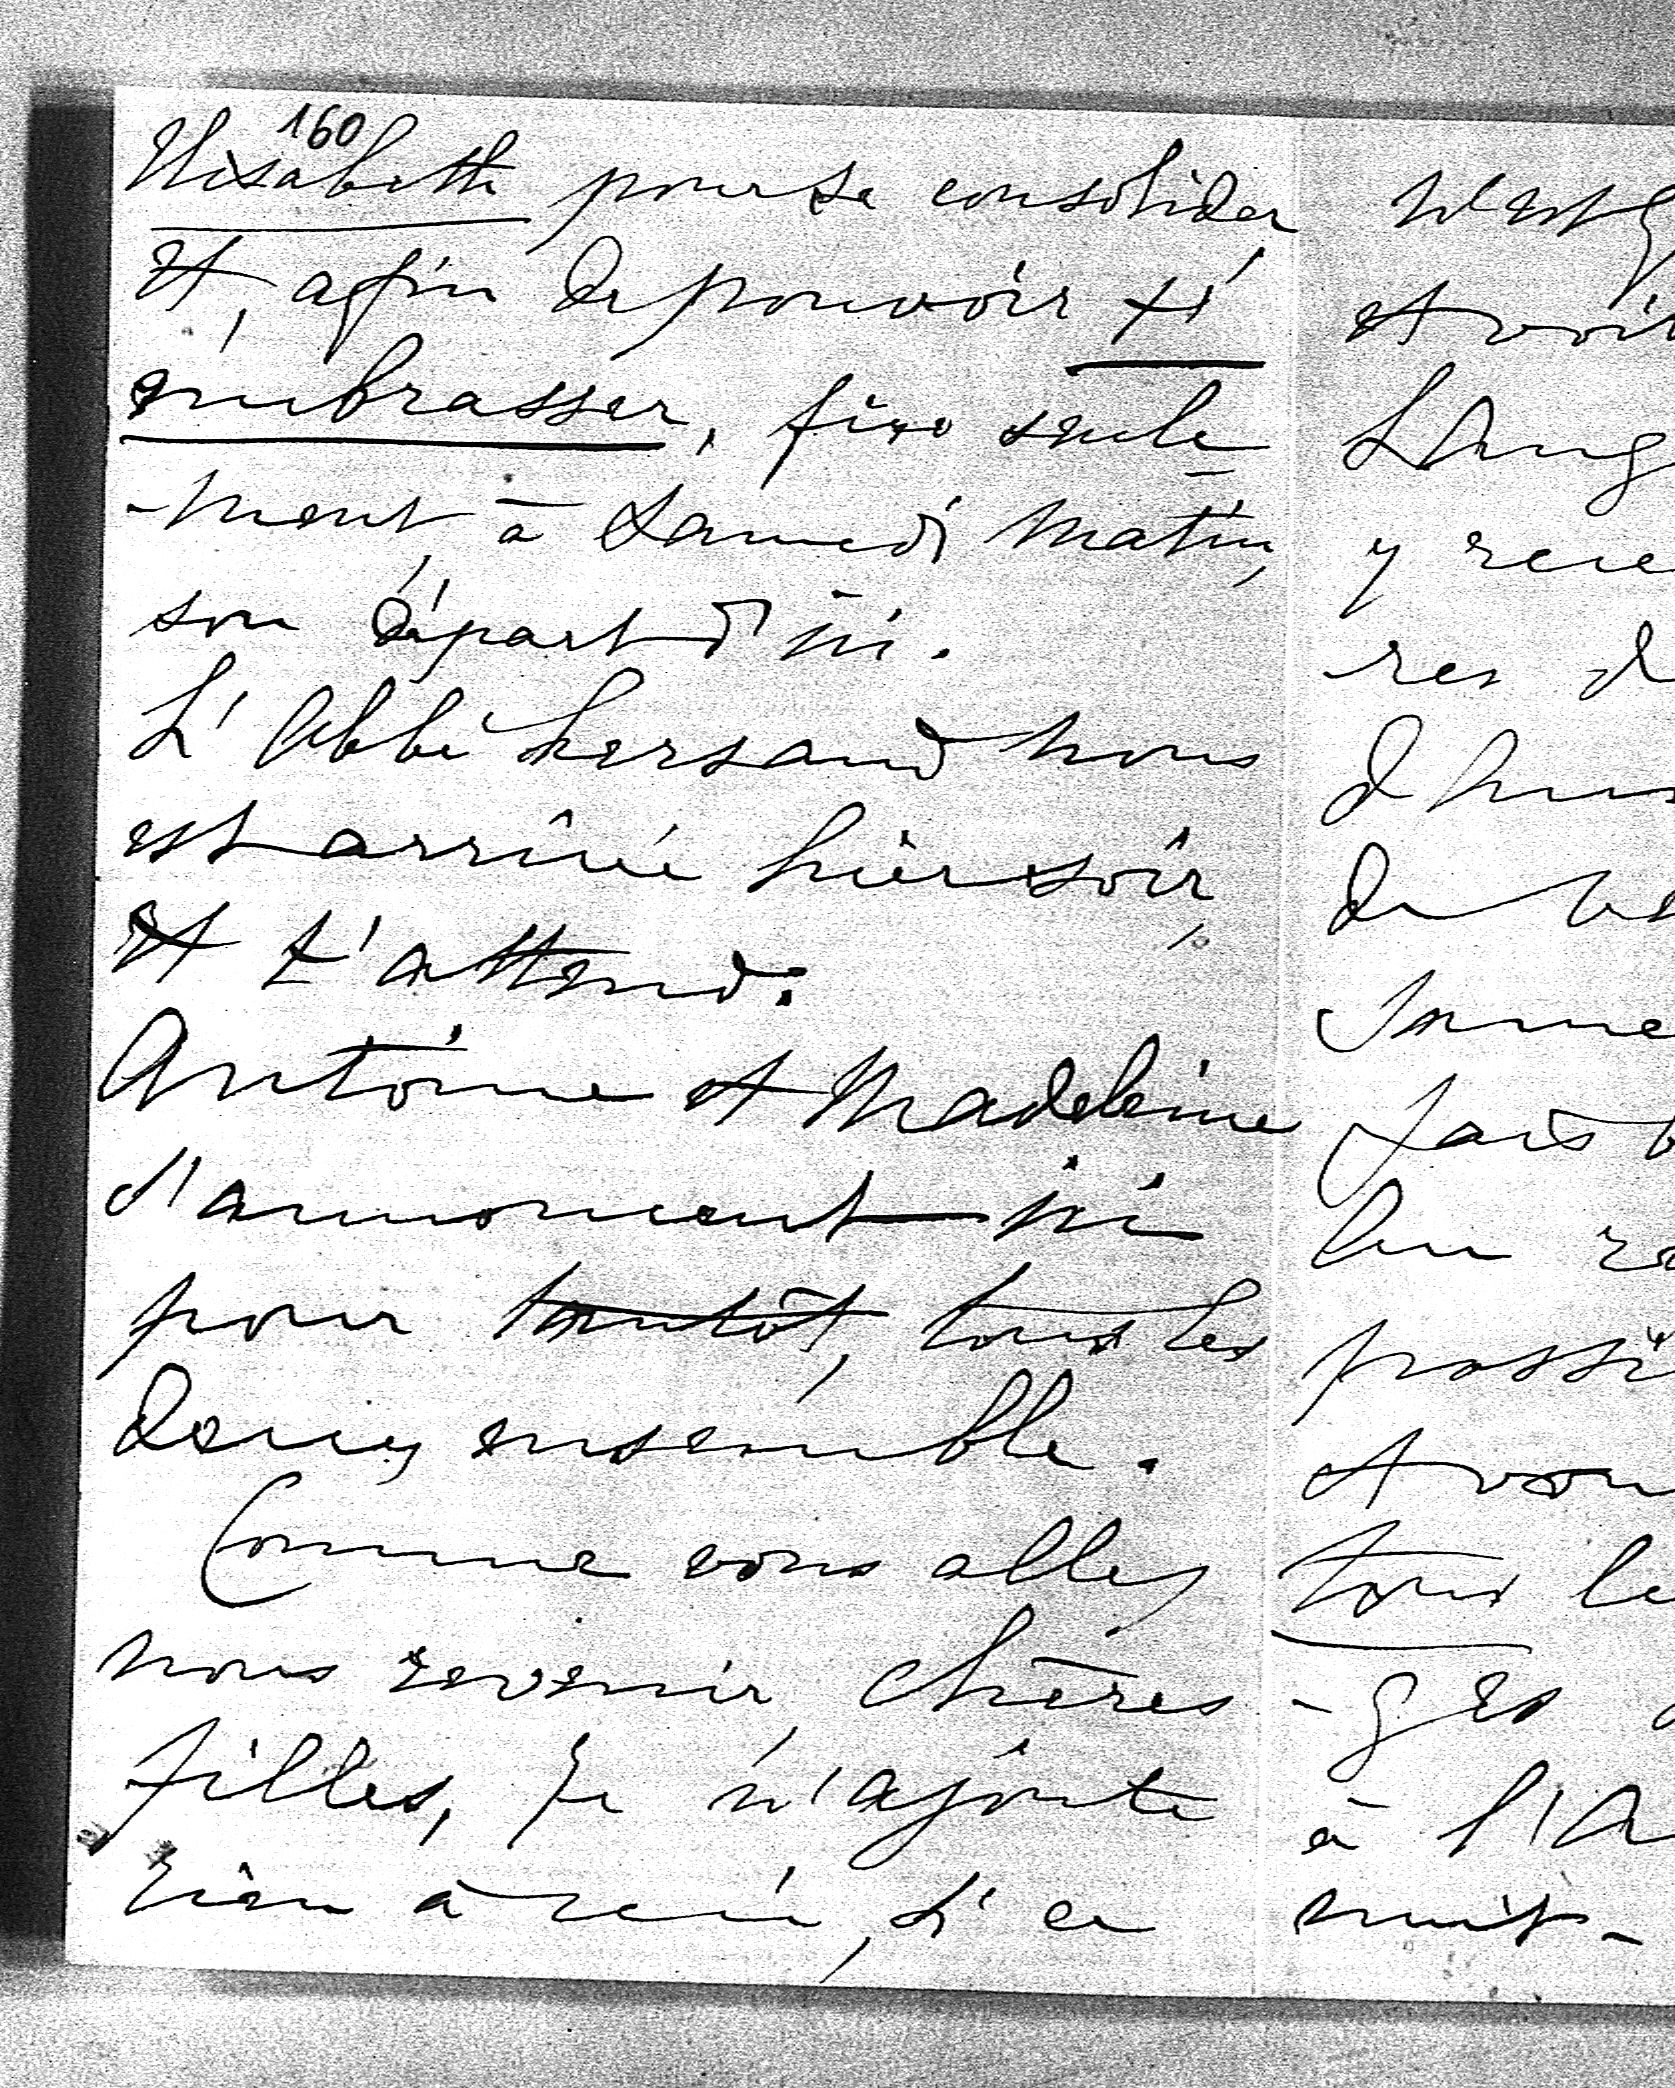 160
Elisabeth pour se consolider
et, afin de pouvoir t'
embrasser, fixe seule
-ment, à Samedi matin,
son départ d'ici.
L'Abbé Kersand nous
est arrivé hier soir,
et t'attend.
Antoine et Madeleine
s'annoncent ici
pour tantôt, tous les
deux ensemble.
Comme vous allez
nous revenir, chères
filles, je n'ajoute
rien à ceci, si ce
n'est q
et voi
L'Aug
y rece
res d
d'hu
de
Somme
fais b
leu
possi
et vou
tous le
-ges
à l'A
suit-